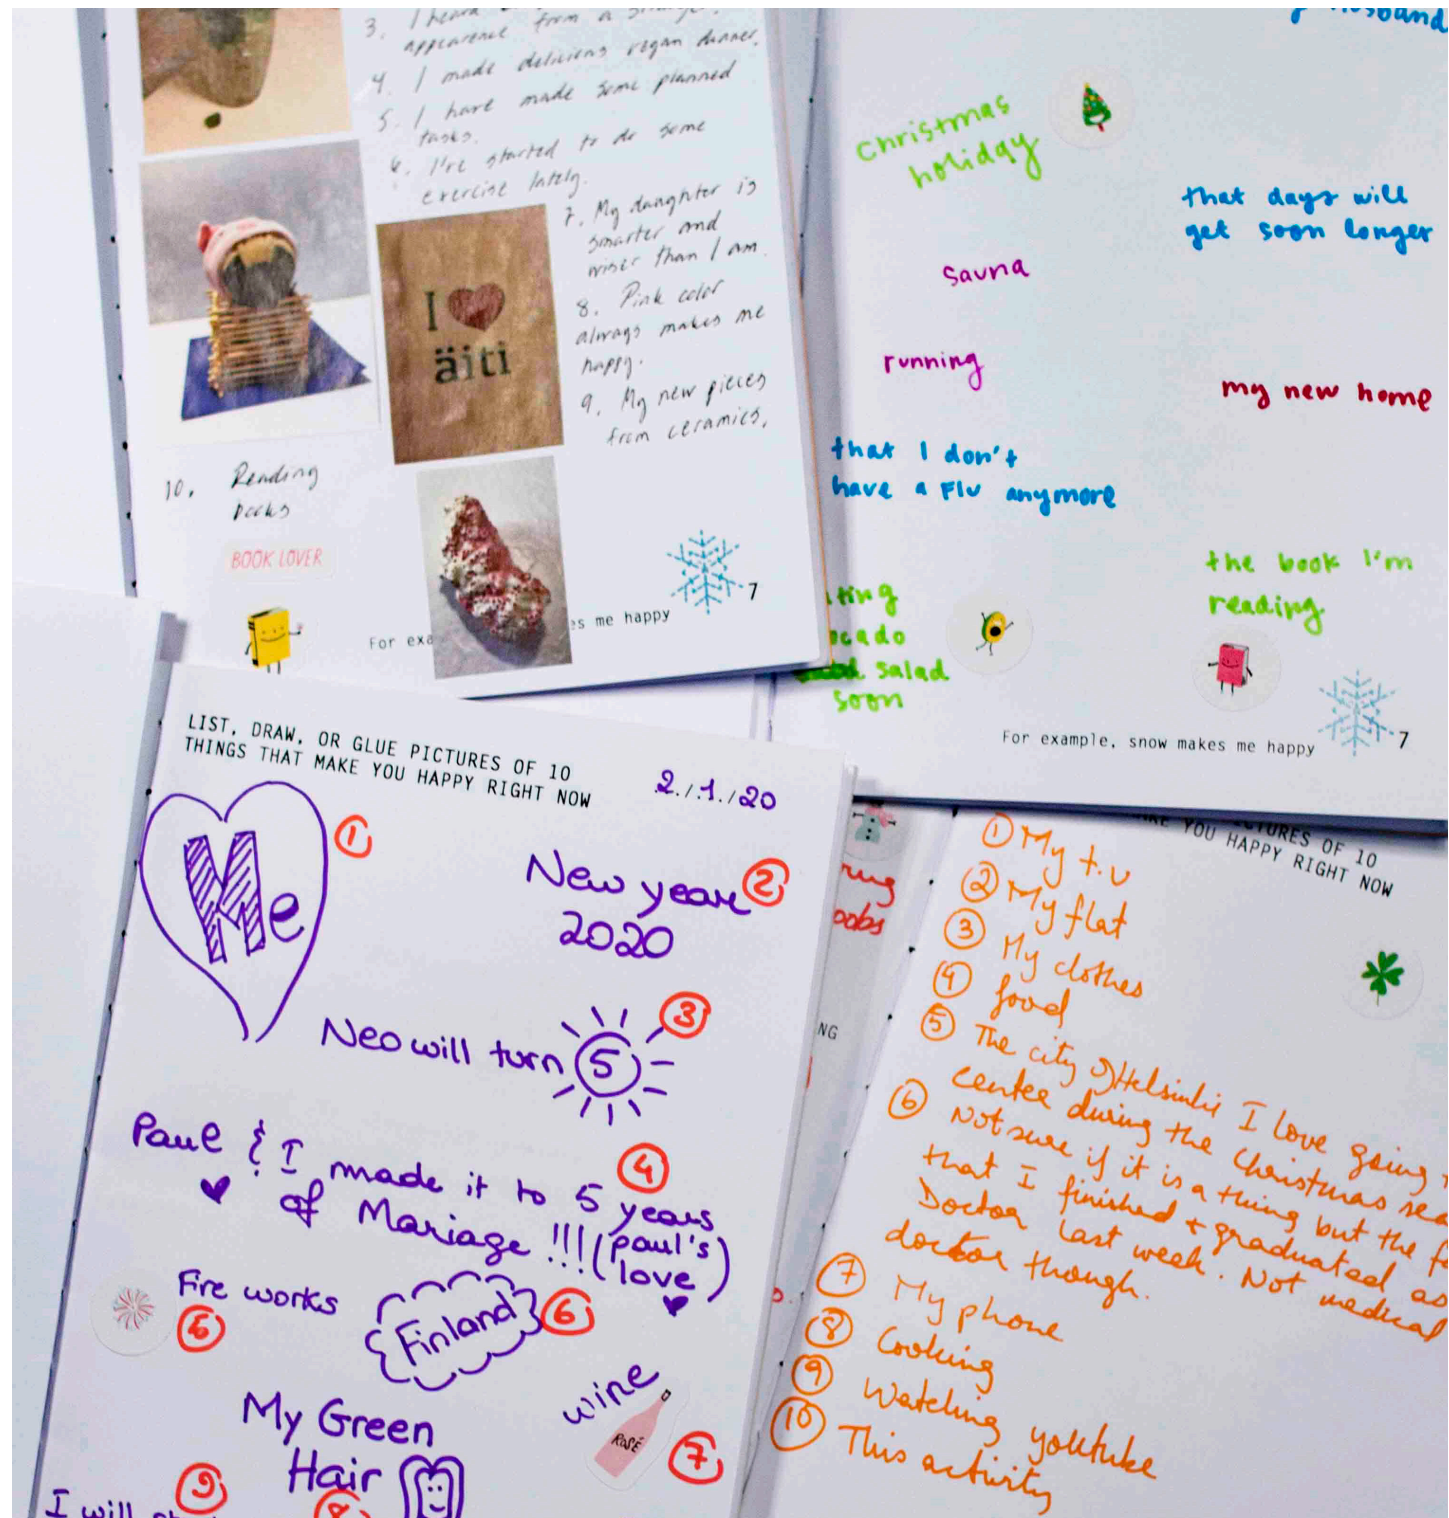 3. I heard
appearence from a
4. I made delicious vegan dinner.
5. I have made some planned
tasks.
6. I've started to do some
exercise lately.
7. My daughter is
smarter and
wiser than I am.
8. Pink color
always makes me
happy.
9. My new pieces
from ceramics.
I ❤
äiti
10. Reading
books
BOOK LOVER
For exa
es me happy
7
husband
christmas
holiday
that days will
get soon longer
sauna
running
my new home
that I don't
have a Flu anymore
the book I'm
reading.
ting
ocado
salad
soon
For example, snow makes me happy
7
LIST, DRAW, OR GLUE PICTURES OF 10
THINGS THAT MAKE YOU HAPPY RIGHT NOW
2./1./20
Me
1
New year 2
2020
Neo will turn 5
3
Paul & I made it to 5 years
4
of Mariage !!! (paul's
love)
Fire works
5
Finland
6
wine
ROSÉ
7
My Green
Hair
8
9
I will
oobs
NG
CTURES OF 10
KE YOU HAPPY RIGHT NOW
1 My t.v
2 My flat
3 My clothes
4 food
5 The city of Helsinki I love going
centee during the Christmas sea
6 Not sure if it is a thing but the fa
that I finished + graduated as
Doctor last week. Not medical
doctor though.
7 My phone
8 Cooking
9 Watching youtube
10 This activity